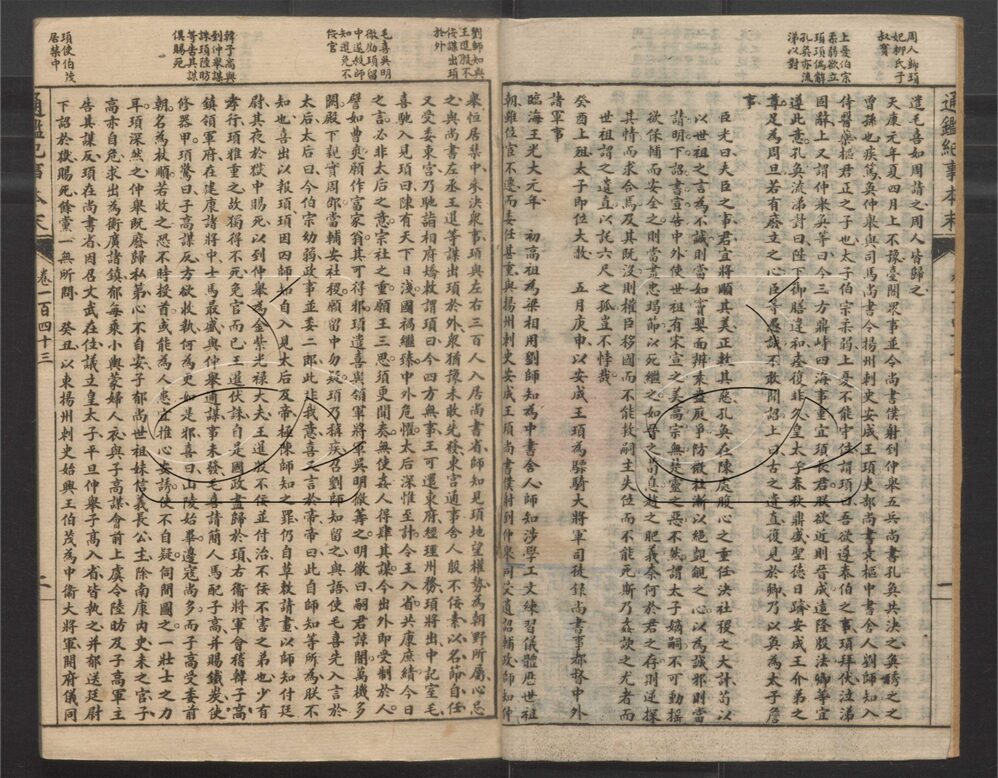 周人歸頊
妃柳氏子
叔寶
上憂伯宗
柔弱欲立
頊頊偽辭
孔奐亦流
涕以對
通鑑紀事本末
遣毛喜如周請之周人皆歸之
天康元年夏四月上不豫臺閣眾事並令尚書僕射到仲舉五兵尚書孔奐共決之奐琇之之
曾孫也疾篤奐仲舉與司馬尚書令揚州刺史安成王頊吏部尚書袁樞中書舍人劉師知入
侍醫藥樞君正之子也太子伯宗柔弱上憂不能守位謂頊曰吾欲遵泰伯之事頊拜伏泣涕
固辭上又謂仲舉奐等曰今三方鼎峙四海事重宜須長君朕欲近則晉成遠隆殷法卿等宜
遵此意孔奐流涕對曰陛下御膳違和痊復非久皇太子春秋鼎盛聖德日躋安成王介弟之
尊足為周旦若有廢立之心臣等愚誠不敢聞詔上曰古之遺直復見於卿乃以奐為太子詹
事
臣光曰夫臣之事君宜將順其美正救其惡孔奐在陳處腹心之重任決社稷之大計苟以
以世祖之言為不誠則當如竇嬰面辯袁盎廷爭防微杜漸以絕覬覦之心以為誠邪則當
請明下詔書宣告中外使世祖有宋宣之美高宗無楚靈之惡不然謂太子嫡嗣不可動搖
欲保輔而安全之則當盡忠竭節以死繼之如晉之荀息趙之肥義奈何於君之存則逆探
其情而求合焉及其既沒則權臣移國而不能救嗣主失位而不能死斯乃姦諛之尤者而
世祖謂之遺直以託六尺之孤豈不悖哉
癸酉上殂太子即位大赦　五月庚申以安成王頊為驃騎大將軍司徒錄尚書事都督中外
諸軍事
臨海王光大元年　初高祖為梁相用劉師知為中書舍人師知涉學工文練習儀體歷世祖
朝雖位宦不遷而委任甚重與揚州刺史安成王頊尚書僕射到仲舉同受遺詔輔政師知仲
劉師知與
王暹殷不
佞謀出頊
於外
毛喜吳明
徹勸頊留
中遂殺師
知暹免不
佞官
韓子高與
到仲舉謀
誅頊陸昉
等告其謀
俱賜死
頊使伯茂
居禁中
舉恆居禁中參決眾事頊與左右三百人入居尚書省師知見頊地望權勢為朝野所屬心忌
之與尚書左丞王暹等謀出頊於外眾猶豫未敢先發東宮通事舍人殷不佞素以名節自任
又受委東宮乃馳詣相府矯敕謂頊曰今四方無事王可還東府經理州務頊將出中記室毛
喜馳入見頊曰陳有天下日淺國禍繼臻中外危懼太后深惟至計令王入省共康庶績今日
之言必非太后之意宗社之重願王三思須更聞奏無使姦人得肆其謀今出外即受制於人
譬如曹爽願作富家翁其可得邪頊遣喜與領軍將軍吳明徹籌之明徹曰嗣君諒闇萬機多
闕殿下親實周邵當輔安社稷願留中勿疑頊乃稱疾召劉師知留之與語使毛喜先入言於
太后太后曰今伯宗幼弱政事並委二郎此非我意喜又言於帝帝曰此自師知等所為朕不
知也喜出以報頊頊因囚師知自入見太后及帝極陳師知之罪仍自草敕請畫以師知付廷
尉其夜於獄中賜死以到仲舉為金紫光祿大夫王暹殷不佞並付治不佞不害之弟也少有
孝行頊雅重之故獨得不死免官而已王暹伏誅自是國政盡歸於頊右衛將軍會稽韓子高
鎮領軍府在建康諸將中士馬最盛與仲舉通謀事未發毛喜請簡人馬配子高并賜鐵炭使
修器甲頊驚曰子高謀反方欲收執何為更如是邪喜曰山陵始畢邊寇尚多而子高受委前
朝名為杖順若收之恐不時授首或能為人患宜推心安誘使不自疑伺間圖之一壯士之力
耳頊深然之仲舉既廢歸私第心不自安子郁尚世祖妹信義長公主除南康內史未之官子
高亦自危求出為衡廣諸鎮郁每乘小輿蒙婦人衣與子高謀會前上虞令陸昉及子高軍主
告其謀反頊在尚書省因召文武在位議立皇太子平旦仲舉子高入省皆執之并郁送廷尉
下詔於獄賜死餘黨一無所問　癸丑以東揚州刺史始興王伯茂為中衛大將軍開府儀同
通鑑紀事本末
卷一百四十三
二